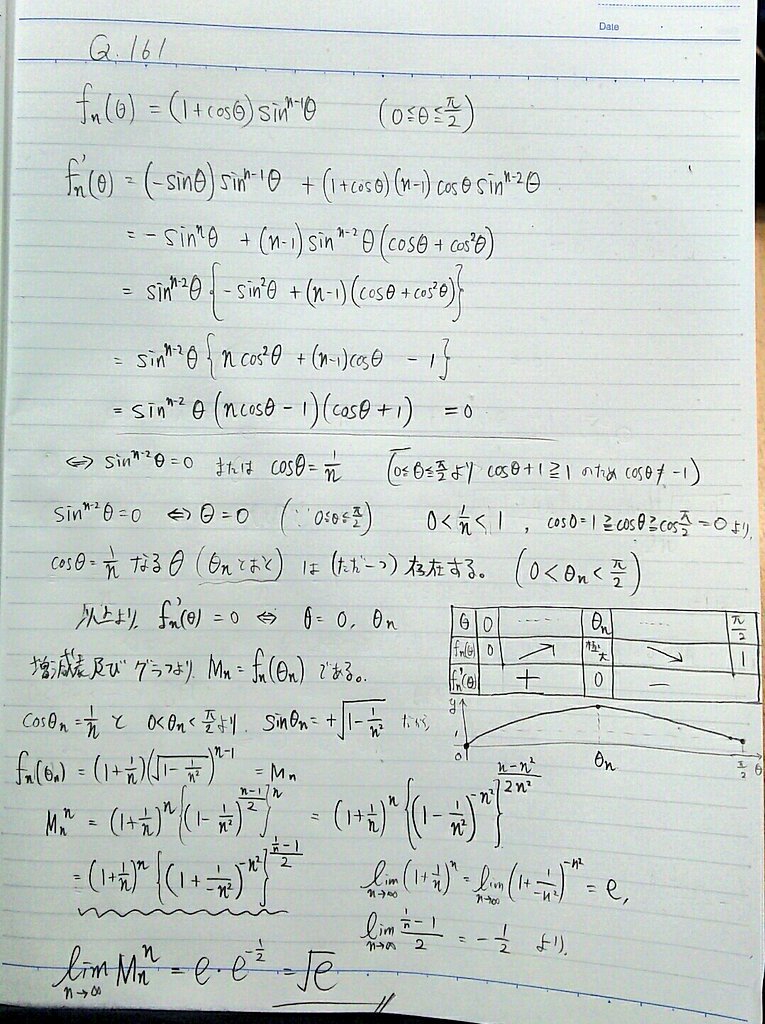 Date
Q.161
fₙ(θ) = (1+cosθ) sinⁿ⁻¹θ (0≦θ≦π/2)
fₙ'(θ) = (-sinθ) sinⁿ⁻¹θ + (1+cosθ)(n-1) cosθ sinⁿ⁻²θ
= - sinⁿθ + (n-1) sinⁿ⁻²θ (cosθ + cos²θ)
= sinⁿ⁻²θ { -sin²θ + (n-1)(cosθ+cos²θ) }
= sinⁿ⁻²θ { n cos²θ + (n-1)cosθ - 1 }
= sinⁿ⁻²θ (n cosθ - 1)(cosθ + 1) = 0
⇔ sinⁿ⁻²θ = 0 または cosθ = 1/n (0≦θ≦π/2 より cosθ+1≧1 のため cosθ≠-1)
sinⁿ⁻²θ = 0 ⇔ θ = 0 (∵ 0≦θ≦π/2) 0 < 1/n < 1 , cos0 = 1 ≧ cosθ ≧ cos π/2 = 0 より,
cosθ = 1/n なる θ (θₙとおく) は (ただ一つ) 存在する。 (0 < θₙ < π/2)
以上より, fₙ'(θ) = 0 ⇔ θ = 0, θₙ
θ 0 ⋯ θₙ ⋯ π/2
fₙ(θ) 0 ↗ 極大 ↘ 1
fₙ'(θ) + 0 −
増減表及びグラフより Mₙ = fₙ(θₙ) である。
y 1 0 θₙ π/2 θ
cosθₙ = 1/n と 0<θₙ<π/2 より, sinθₙ = +√(1 - 1/n²) だから
fₙ(θₙ) = (1+1/n)(√(1 - 1/n²))ⁿ⁻¹ = Mₙ
Mₙⁿ = (1+1/n)ⁿ {(1 - 1/n²)^((n-1)/2)}ⁿ = (1+1/n)ⁿ {(1 - 1/n²)^(-n²)}^((n-n²)/(2n²))
= (1+1/n)ⁿ {(1 + 1/(-n²))^(-n²)}^((1/n - 1)/2)
lim n→∞ (1+1/n)ⁿ = lim n→∞ (1 + 1/(-n²))^(-n²) = e,
lim n→∞ (1/n - 1)/2 = -1/2 より,
lim n→∞ Mₙⁿ = e · e^(-1/2) = √e